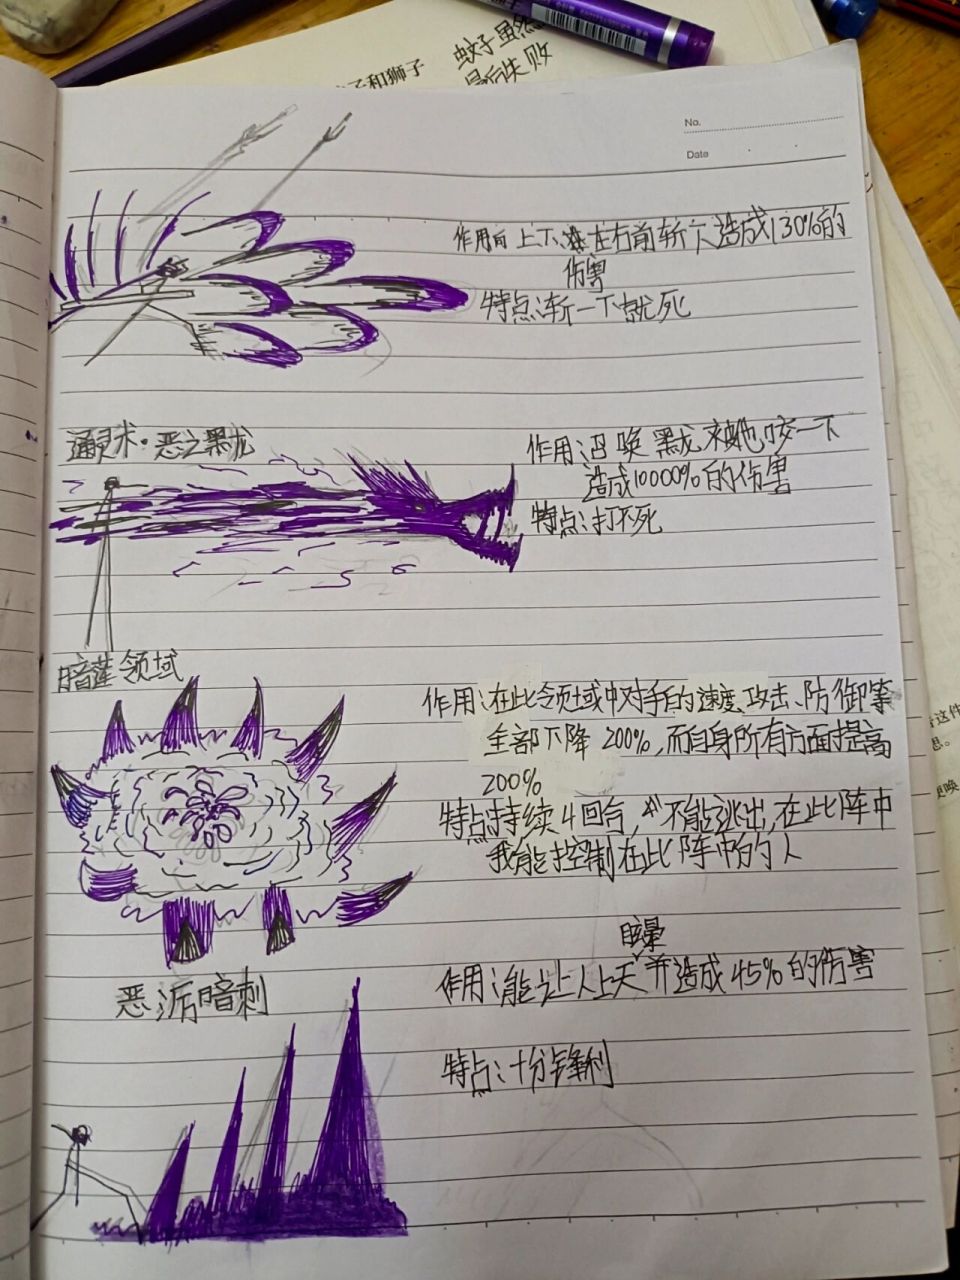 蚊子虽然
子和狮子
最后失败
No.
Date
作用向上下左右前斩六造成130%的
伤害
特点:斩一下就死
通灵术·恶之黑龙
作用:召唤黑龙被他咬一下
造成10000%的伤害
特点:打不死
暗莲领域
作用:在此领域中对手的速度、攻击、防御等
全部下降200%,而自身所有方面提高
200%
特点:持续4回合,不能逃出,在此阵中
我能控制在此阵中的人
眩晕
恶派暗刺
作用:能让人上天并造成45%的伤害
特点:十分锋利
这件
思。
唤